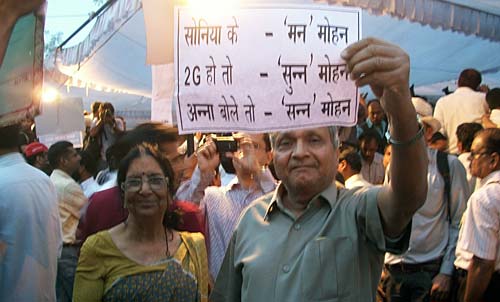 सोनिया के - 'मन' मोहन
2G हो तो - 'सुन्न' मोहन
अन्ना बोले तो - 'सन्न' मोहन